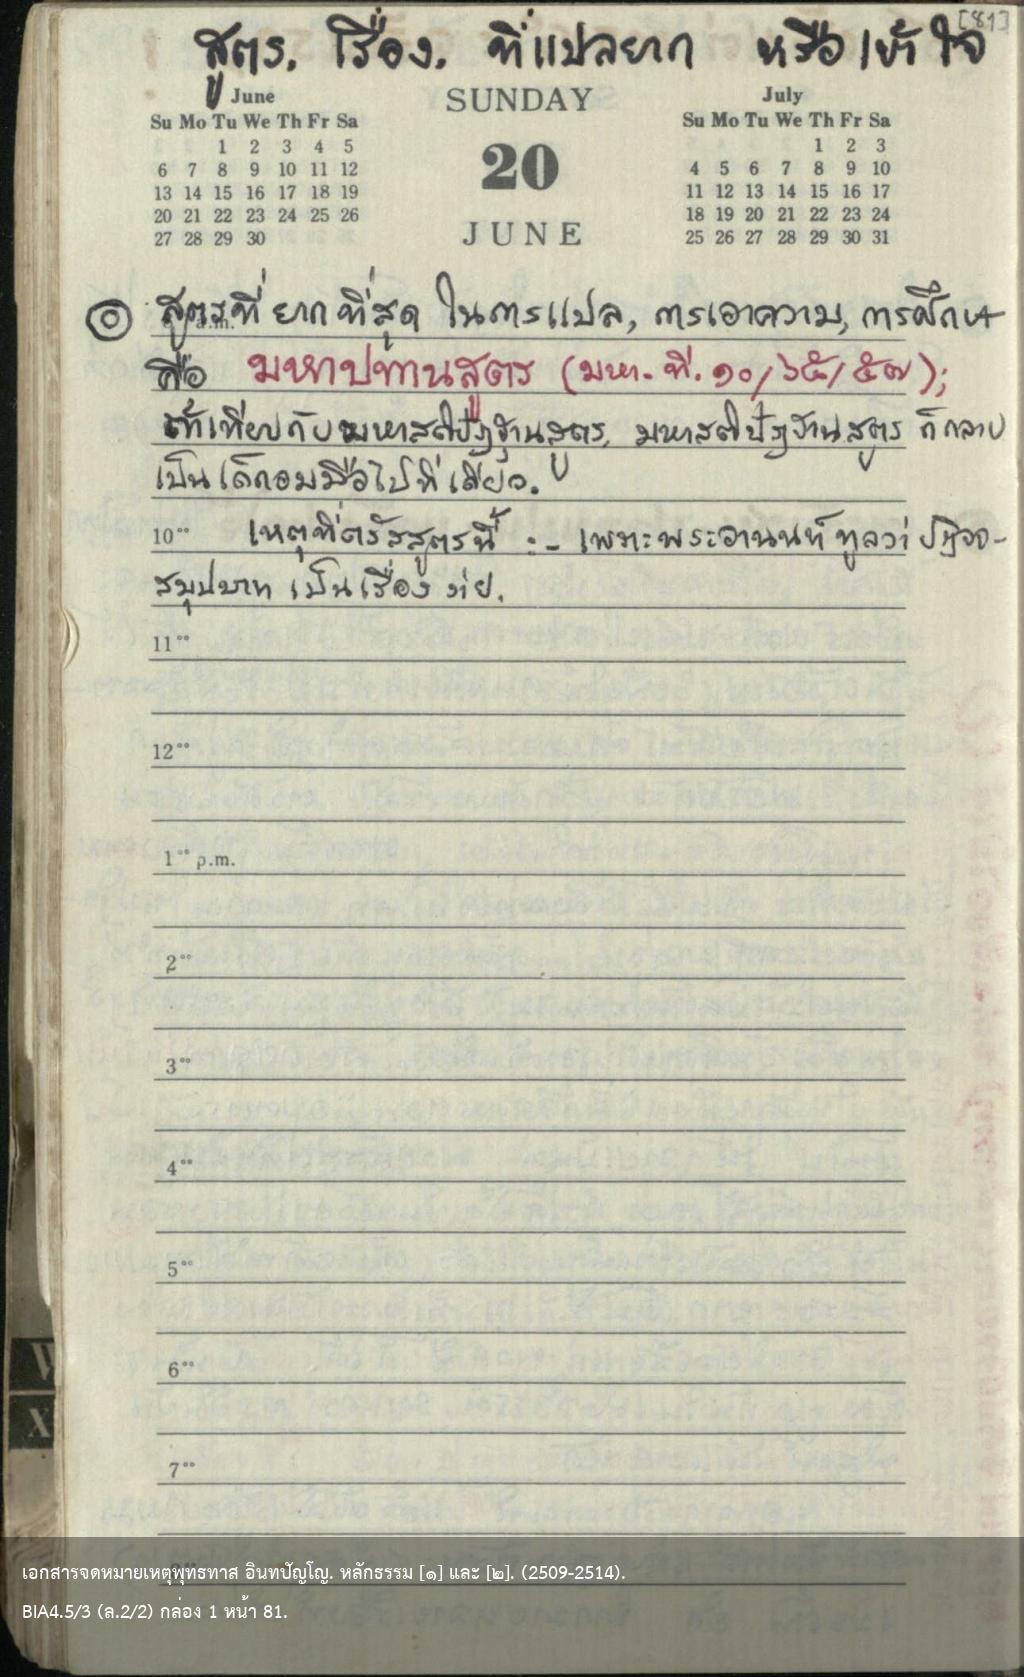 [81]
สูตร. เรื่อง. ที่แปลยาก หรือเข้าใจ
June
Su Mo Tu We Th Fr Sa
1 2 3 4 5
6 7 8 9 10 11 12
13 14 15 16 17 18 19
20 21 22 23 24 25 26
27 28 29 30
SUNDAY
20
JUNE
July
Su Mo Tu We Th Fr Sa
1 2 3
4 5 6 7 8 9 10
11 12 13 14 15 16 17
18 19 20 21 22 23 24
25 26 27 28 29 30 31
สูตรที่ยากที่สุด ในการแปล, การเอาความ, การศึกษา
คือ มหาปทานสูตร (มหา. ที. ๑๐/๖๕/๕๗);
ถ้าเทียบกับมหาสติปัฏฐานสูตร, มหาสติปัฏฐานสูตร ก็กลาย
เป็นเด็กอมมือไปทีเดียว.
10°° เหตุที่ตรัสสูตรนี้ :- เพราะพระอานนท์ทูลว่า ปฏิจจ-
สมุปบาท เป็นเรื่องง่าย.
11°°
12°°
1°° p.m.
2°°
3°°
4°°
5°°
6°°
7°°
W
X
เอกสารจดหมายเหตุพุทธทาส อินทปัญโญ. หลักธรรม [๑] และ [๒]. (2509-2514).
BIA4.5/3 (ล.2/2) กล่อง 1 หน้า 81.